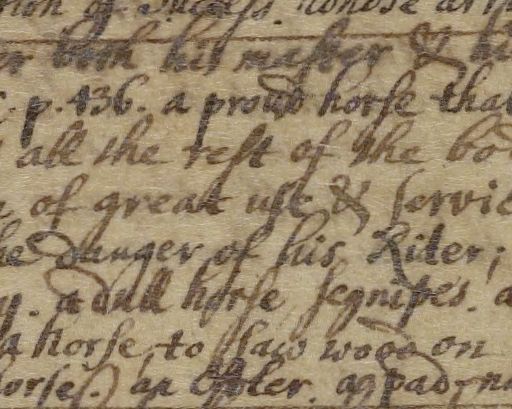 of
both his master & h
p. 436. a proud horse that
all the rest of the bo
of great use & servic
he danger of his Rider;
a dull horse, segnipes. a
a horse, to saw wood on
horse. an Ostler. a pad-n